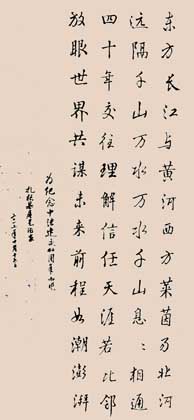 东方长江与黄河西方莱茵易北河
远隔千山万水万水千山息々相通
四十年交往理解信任天涯若比邻
放眼世界共谋未来前程如潮澎湃
为纪念中德建交四十周年而作